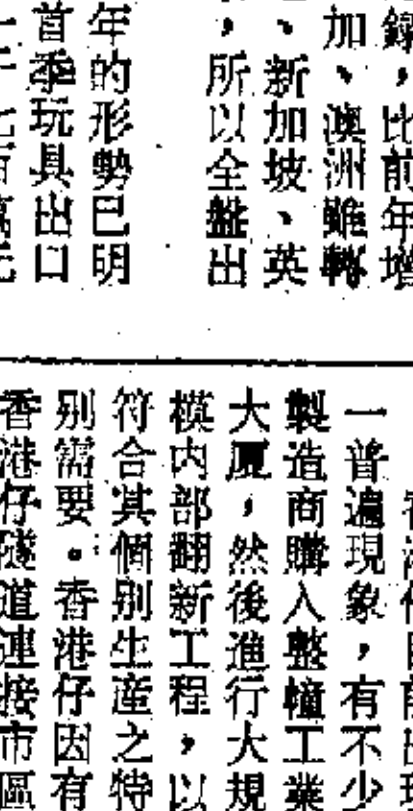 鐐，比前年增
加、澳洲雖轉
、新加坡、英
，所以全盤出
年的形勢巳明
首季玩具出口
一普遍現象，有不少
製造商購入整幢工業
大厦，然後進行大規
模内部翻新工程，以
符合其個别生産之特
别需要。香港仔因有
香港仔隧道連接市區